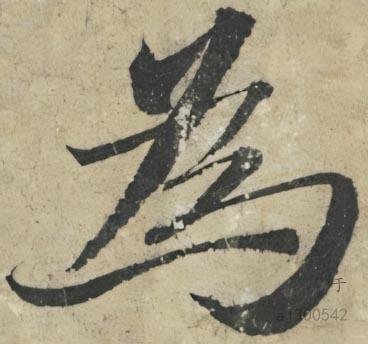 為
于
a1300542